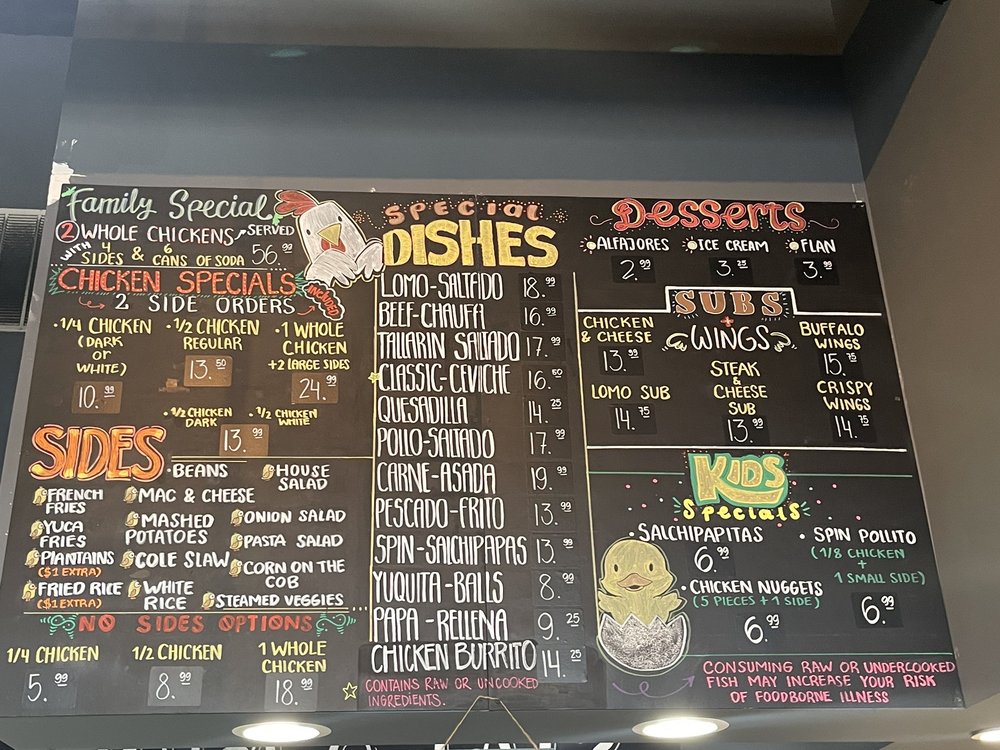 Family Special
2 WHOLE CHICKENS SERVED
WITH 4 SIDES & 6 CANS OF SODA 56.99
CHICKEN SPECIALS
2 SIDE ORDERS INCLUDED
• 1/4 CHICKEN (DARK OR WHITE) 10.99
• 1/2 CHICKEN REGULAR 13.50
• 1 WHOLE CHICKEN +2 LARGE SIDES 24.99
• 1/2 CHICKEN DARK • 1/2 CHICKEN WHITE
13.99
SIDES
• BEANS
HOUSE SALAD
FRENCH FRIES
MAC & CHEESE
YUCA FRIES
MASHED POTATOES
ONION SALAD
PASTA SALAD
PLANTAINS ($1 EXTRA)
COLE SLAW
CORN ON THE COB
FRIED RICE ($1 EXTRA)
WHITE RICE
STEAMED VEGGIES
NO SIDES OPTIONS
1/4 CHICKEN 5.99
1/2 CHICKEN 8.99
1 WHOLE CHICKEN 18.99
SPECIAL
DISHES
LOMO-SALTADO 18.99
BEEF-CHAUFA 16.99
TALLARIN SALTADO 17.99
CLASSIC-CEVICHE 16.50
QUESADILLA 14.25
POLLO-SALTADO 17.99
CARNE-ASADA 19.99
PESCADO-FRITO 13.99
SPIN-SALCHIPAPAS 13.99
YUQUITA-BALLS 8.99
PAPA-RELLENA 9.25
CHICKEN BURRITO 14.25
CONTAINS RAW OR UNCOOKED
INGREDIENTS.
DESSERTS
ALFAJORES 2.99
ICE CREAM 3.25
FLAN 3.99
SUBS
+
WINGS
CHICKEN & CHEESE 13.99
LOMO SUB 14.75
STEAK & CHEESE SUB 13.99
BUFFALO WINGS 15.75
CRISPY WINGS 14.75
KIDS
Specials
• SALCHIPAPITAS 6.99
• SPIN POLLITO
(1/8 CHICKEN
+
1 SMALL SIDE)
6.99
• CHICKEN NUGGETS
(5 PIECES + 1 SIDE)
6.99
CONSUMING RAW OR UNDERCOOKED
FISH MAY INCREASE YOUR RISK
OF FOODBORNE ILLNESS